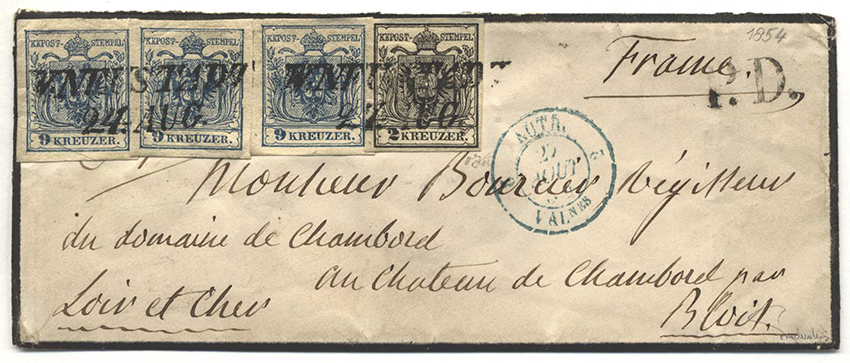 1854
KKPOST-STEMPEL KKPOST-STEMPEL KKPOST-STEMPEL KKPOST-STEMPEL
W.NEUSTADT W.NEUSTADT
24. AUG.
9 KREUZER. 9 KREUZER. 9 KREUZER. 2 KREUZER.
France.
P.D.
AUTR.
27
AOUT
VALNES
Monsieur Bourcier Régisseur
du domaine de Chambord
au Chateau de Chambord par
Loir et Cher
Blois.